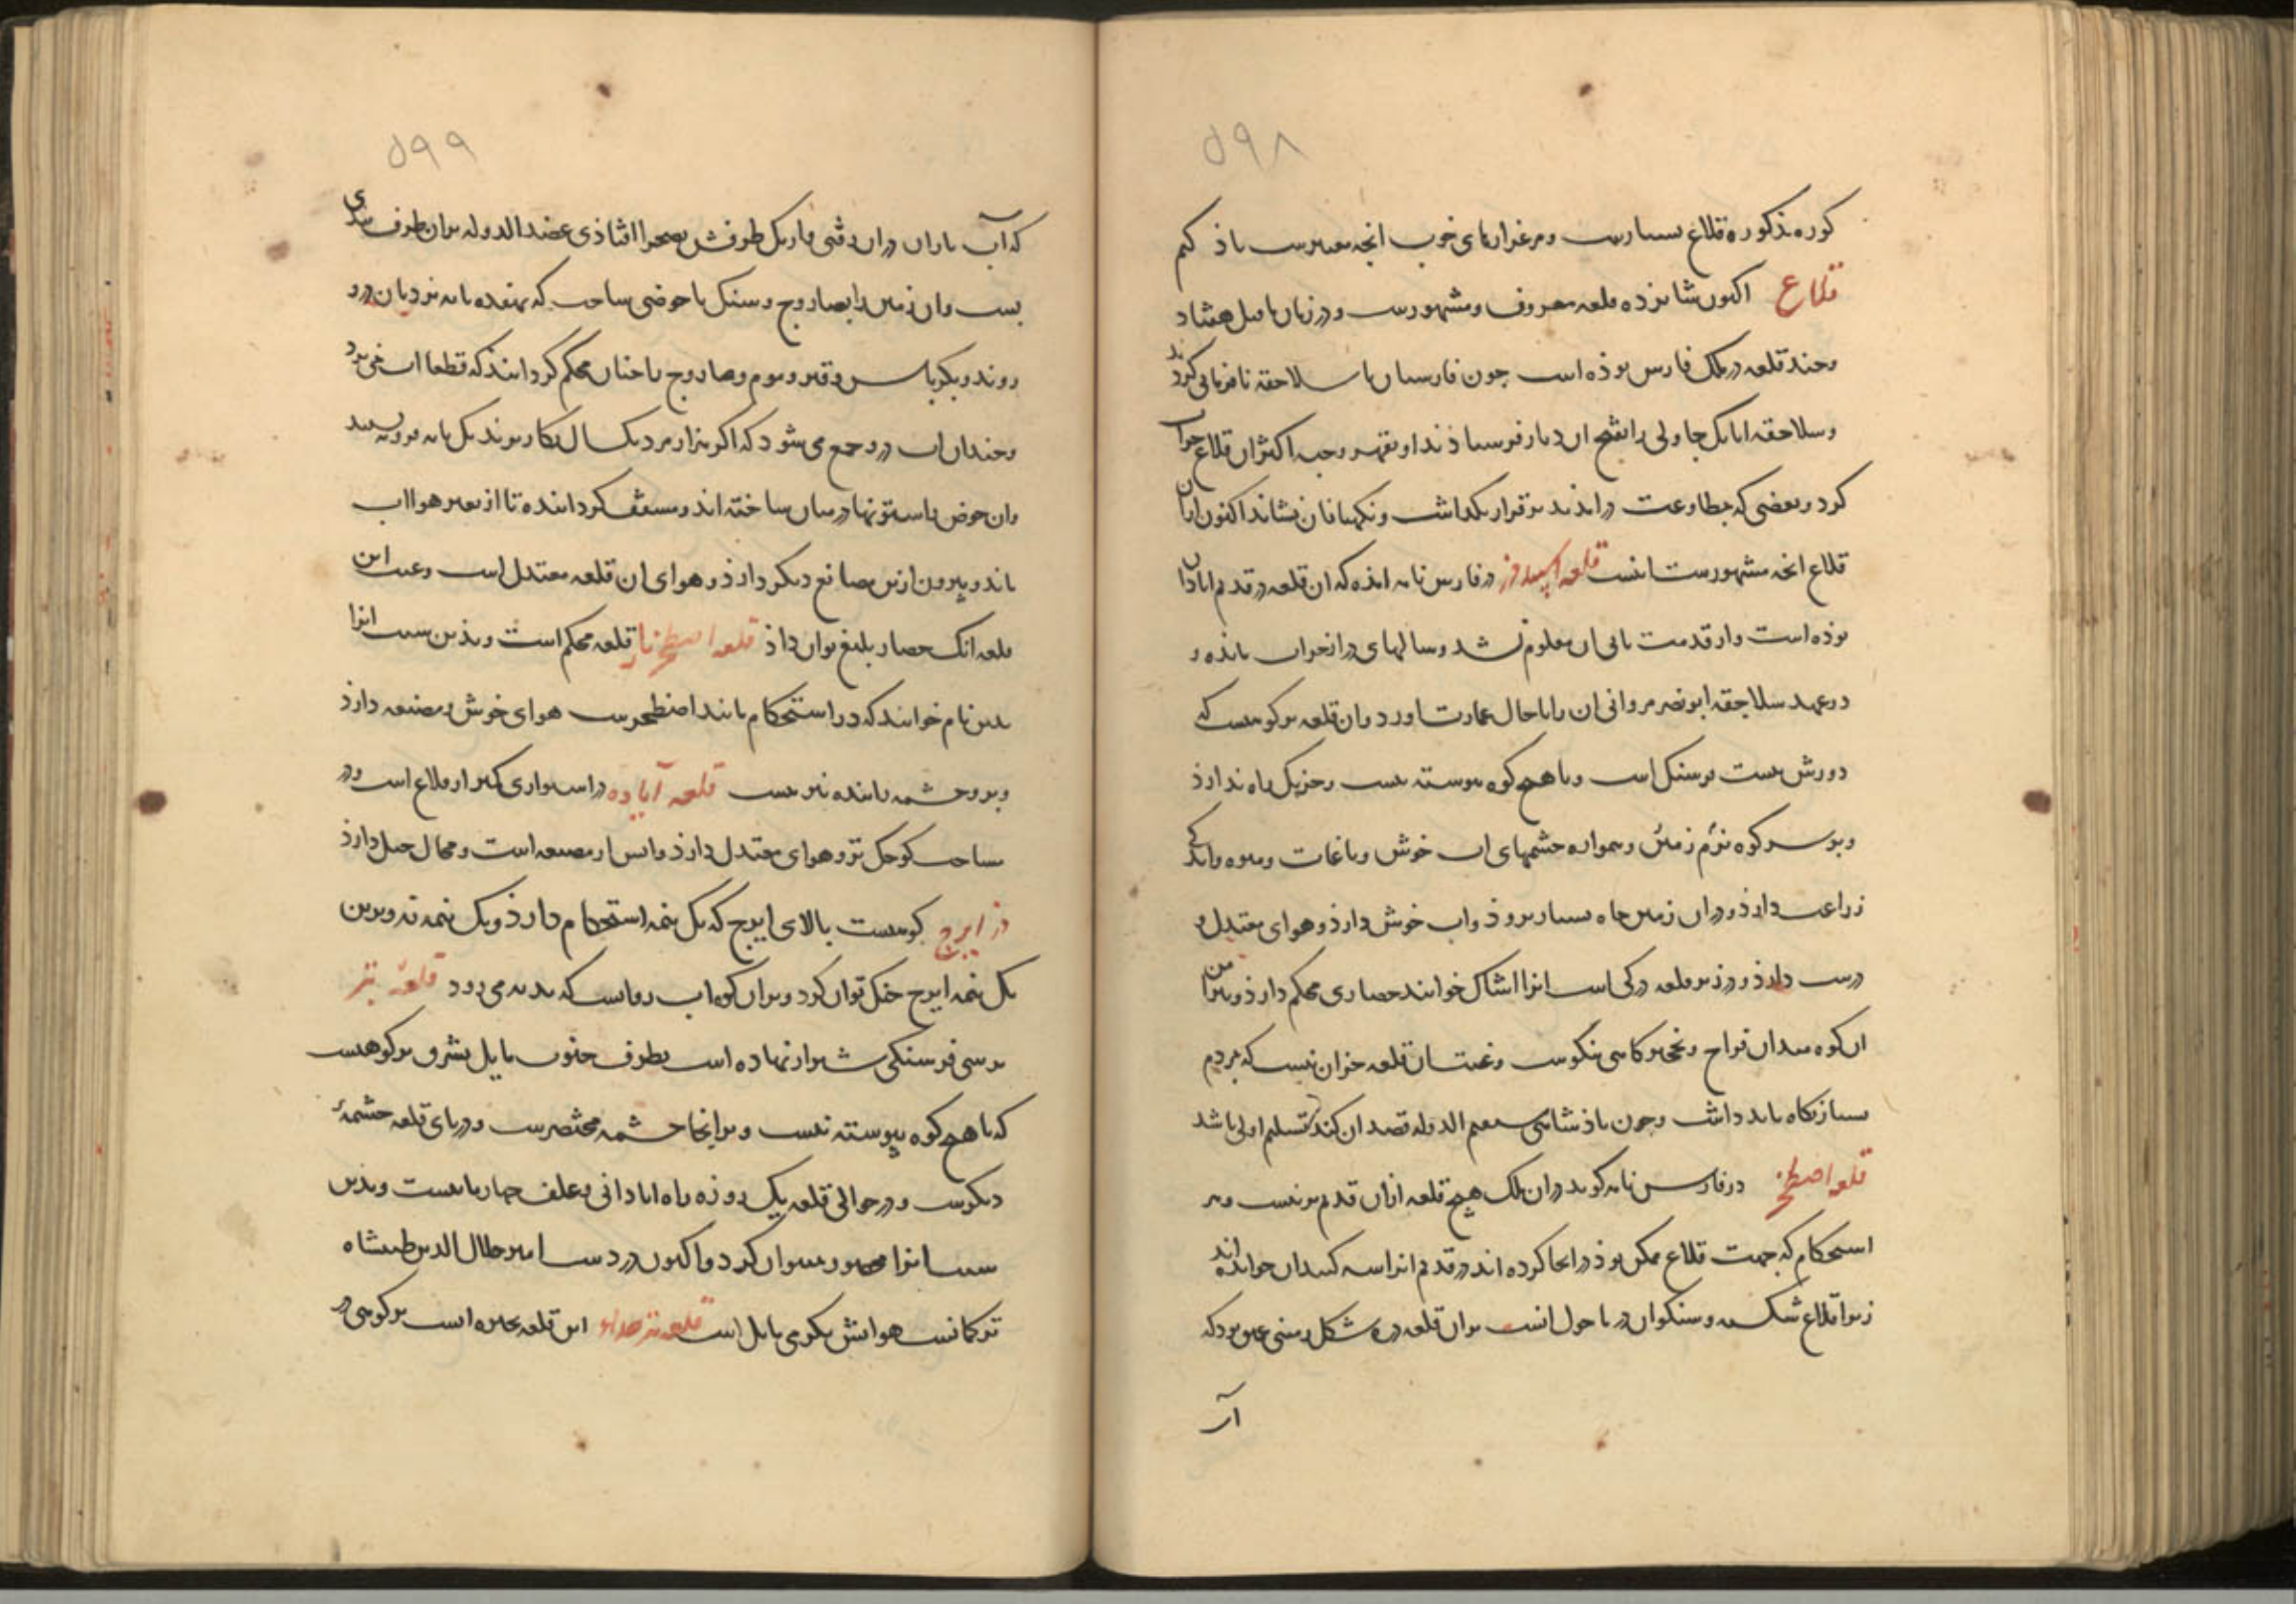 ۵۹۸
کوره مذکوره قلاع بسیارست و مرغزارهای خوب انچه معتبرست یاذ کنم
قلاع اکنون شانزده قلعه معروف و مشهورست و در زمان ماقبل هفتاد
و چند قلعه در ملک فارس بوذه است چون فارسیان با سلاجقه نافرمانی کردند
و سلاجقه اتابک چاولی را بفتح ان دیار فرستاذند او بقهر و جبر اکثر ان قلاع خراب
کرد و بعضی که بمطاوعت درامذند برقرار بگذاشت و نگهبانان نشاند اکنون ازان
قلاع انچه مشهورست اینست قلعه اسپیددز در فارس نامه امذه که ان قلعه در قدیم ابادان
بوذه است و از قدمت بانی ان معلوم نشد و سالهای دراز خراب مانده و
در عهد سلاجقه ابونصر مردانی ان را باحال عمارت اورد و ان قلعه بر کوهیست که
دورش بیست فرسنگ است و با هیچ کوه پیوسته نیست و جز یک راه ندارذ
و بر سر کوه نرم زمین و همواره چشمهای اب خوش و باغات و میوه و اندکی
زراعت دارذ و دران زمین چاه بسیار برود و اب خوش دارذ و هوای معتدل و
درست دارذ و در زیر قلعه دزکی است انرا اشناک خوانند حصاری محکم دارذ و پیرامن
ان کوه میدان فراخ و نخجیرگاهی نیکوست و عیب ان قلعه جز ان نیست که بمردم
بسیار نگاه باید داشت و چون پاذشاهی مستقیم الدوله قصد ان کند تسلیم اولی باشد
قلعه اصطخر در فارس نامه گوید در ان ملک هیچ قلعه ازان قدیم تر نیست و هر
استحکام که جهت قلاع ممکن بوذ در انجا کرده اند در قدیم انرا سه گنبدان خوانده اند
زیرا قلاع شکسته و سنکوان در ماحول انست بران قلعه دره شکل زمینی عمیق بودکه
آب
۵۹۹
که آب باران دران رفتی و از یک طرفش بصحرا افتاذی عضدالدوله بران طرف سدی
بست و ان زمین را بصاروج و سنگ با حوضی ساخت که بهفده پایه نردبان درو
روند و بکرباس و قیر و موم و صاروج چنان محکم کردانند که قطعا اب نمی برد
و چندان اب درو جمع می شود که اگر هزار مرد یکسال بکار برند یک پایه فرو نشیند
و ان حوض را ستونها درمیان ساخته اند و مسقف کردانیده تا از تغیر هوا اب
ماند و بیرون ازین مصانع دیگر دارذ و هوای ان قلعه معتدل است و عیب این
قلعه انک حصار بلیغ توان داذ قلعه اصطخریار قلعه محکم است و بذین سبب انرا
بدین نام خوانند که در استحکام مانند اصطخرست هوای خوش و مصنعه دارذ
و برو چشمه زاینده نیز هست قلعه آباده در استواری کمتر از قلاع است و در
مساحت کوچک تر و هوای معتدل دارذ و ابش از مصنعه است و مجال جنک دارذ
دز ایرج کوهیست بالای ایرج که یک نیمه استحکام دارذ و یک نیمه نه و برین
یک نیمه ایرج جنک توان کرد و بران کوه اب روانست که بدیه می رود قلعه تبر
بر سی فرسنگی شیراز نهاده است بطرف جنوب مایل بشرق بر کوهیست
که با هیچ کوه پیوسته نیست و بر انجا چشمه مختصرست و در پای قلعه چشمهٔ
دیگرست و در حوالی قلعه یک روزه راه ابادانی و علف چهارپا نیست و بذین
سبب انرا محصور نتوان کرد و اکنون در دست امیر جلال الدین طیبشاه
ترکمانست هوایش بگرمی مایل است قلعه تیرخدای این قلعه بخیره است بر کوهی در